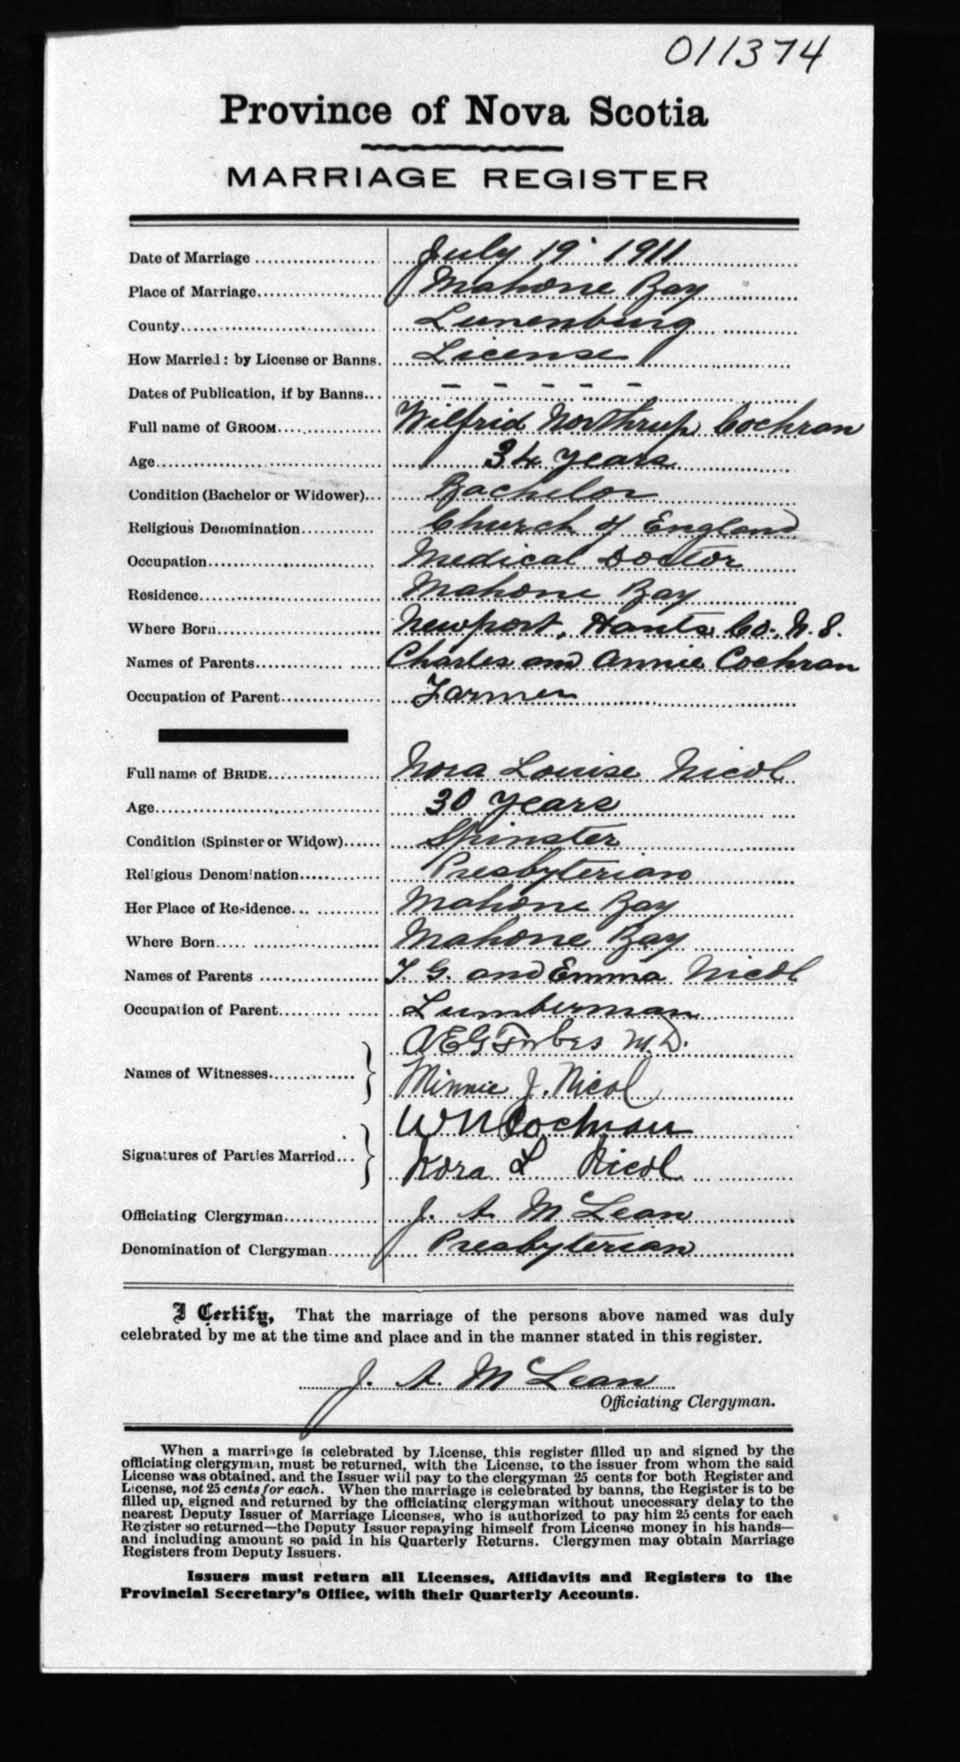 011374
Province of Nova Scotia
MARRIAGE REGISTER
Date of Marriage ................... July 19 1911
Place of Marriage................... Mahone Bay
County................................ Lunenburg
How Married: by License or Banns. License
Dates of Publication, if by Banns... – – – – –
Full name of GROOM................ Wilfrid Northrup Cochran
Age................................... 34 years
Condition (Bachelor or Widower)... Bachelor
Religious Denomination............ Church of England
Occupation.......................... Medical Doctor
Residence........................... Mahone Bay
Where Born.......................... Newport, Hants Co. N.S.
Names of Parents................... Charles and Annie Cochran
Occupation of Parent............... Farmer
Full name of BRIDE................. Nora Louise Nicol
Age................................... 30 years
Condition (Spinster or Widow)...... Spinster
Religious Denomination............ Presbyterian
Her Place of Residence... .......... Mahone Bay
Where Born..... ................... Mahone Bay
Names of Parents .................. and Emma Nicol
Occupation of Parent............... Lumberman
Forbes M.D.
Names of Witnesses..............
Minnie J. Nicol
W N Cochran
Signatures of Parties Married...
Nora L Nicol
Officiating Clergyman.............. J. A. McLean
Denomination of Clergyman......... Presbyterian
I Certify, That the marriage of the persons above named was duly
celebrated by me at the time and place and in the manner stated in this register.
J. A. McLean
Officiating Clergyman.
When a marriage is celebrated by License, this register filled up and signed by the
officiating clergyman, must be returned, with the License, to the issuer from whom the said
License was obtained, and the Issuer will pay to the clergyman 25 cents for both Register and
License, not 25 cents for each. When the marriage is celebrated by banns, the Register is to be
filled up, signed and returned by the officiating clergyman without unecessary delay to the
nearest Deputy Issuer of Marriage Licenses, who is authorized to pay him 25 cents for each
Register so returned—the Deputy Issuer repaying himself from License money in his hands—
and including amount so paid in his Quarterly Returns. Clergymen may obtain Marriage
Registers from Deputy Issuers.
Issuers must return all Licenses, Affidavits and Registers to the
Provincial Secretary's Office, with their Quarterly Accounts.